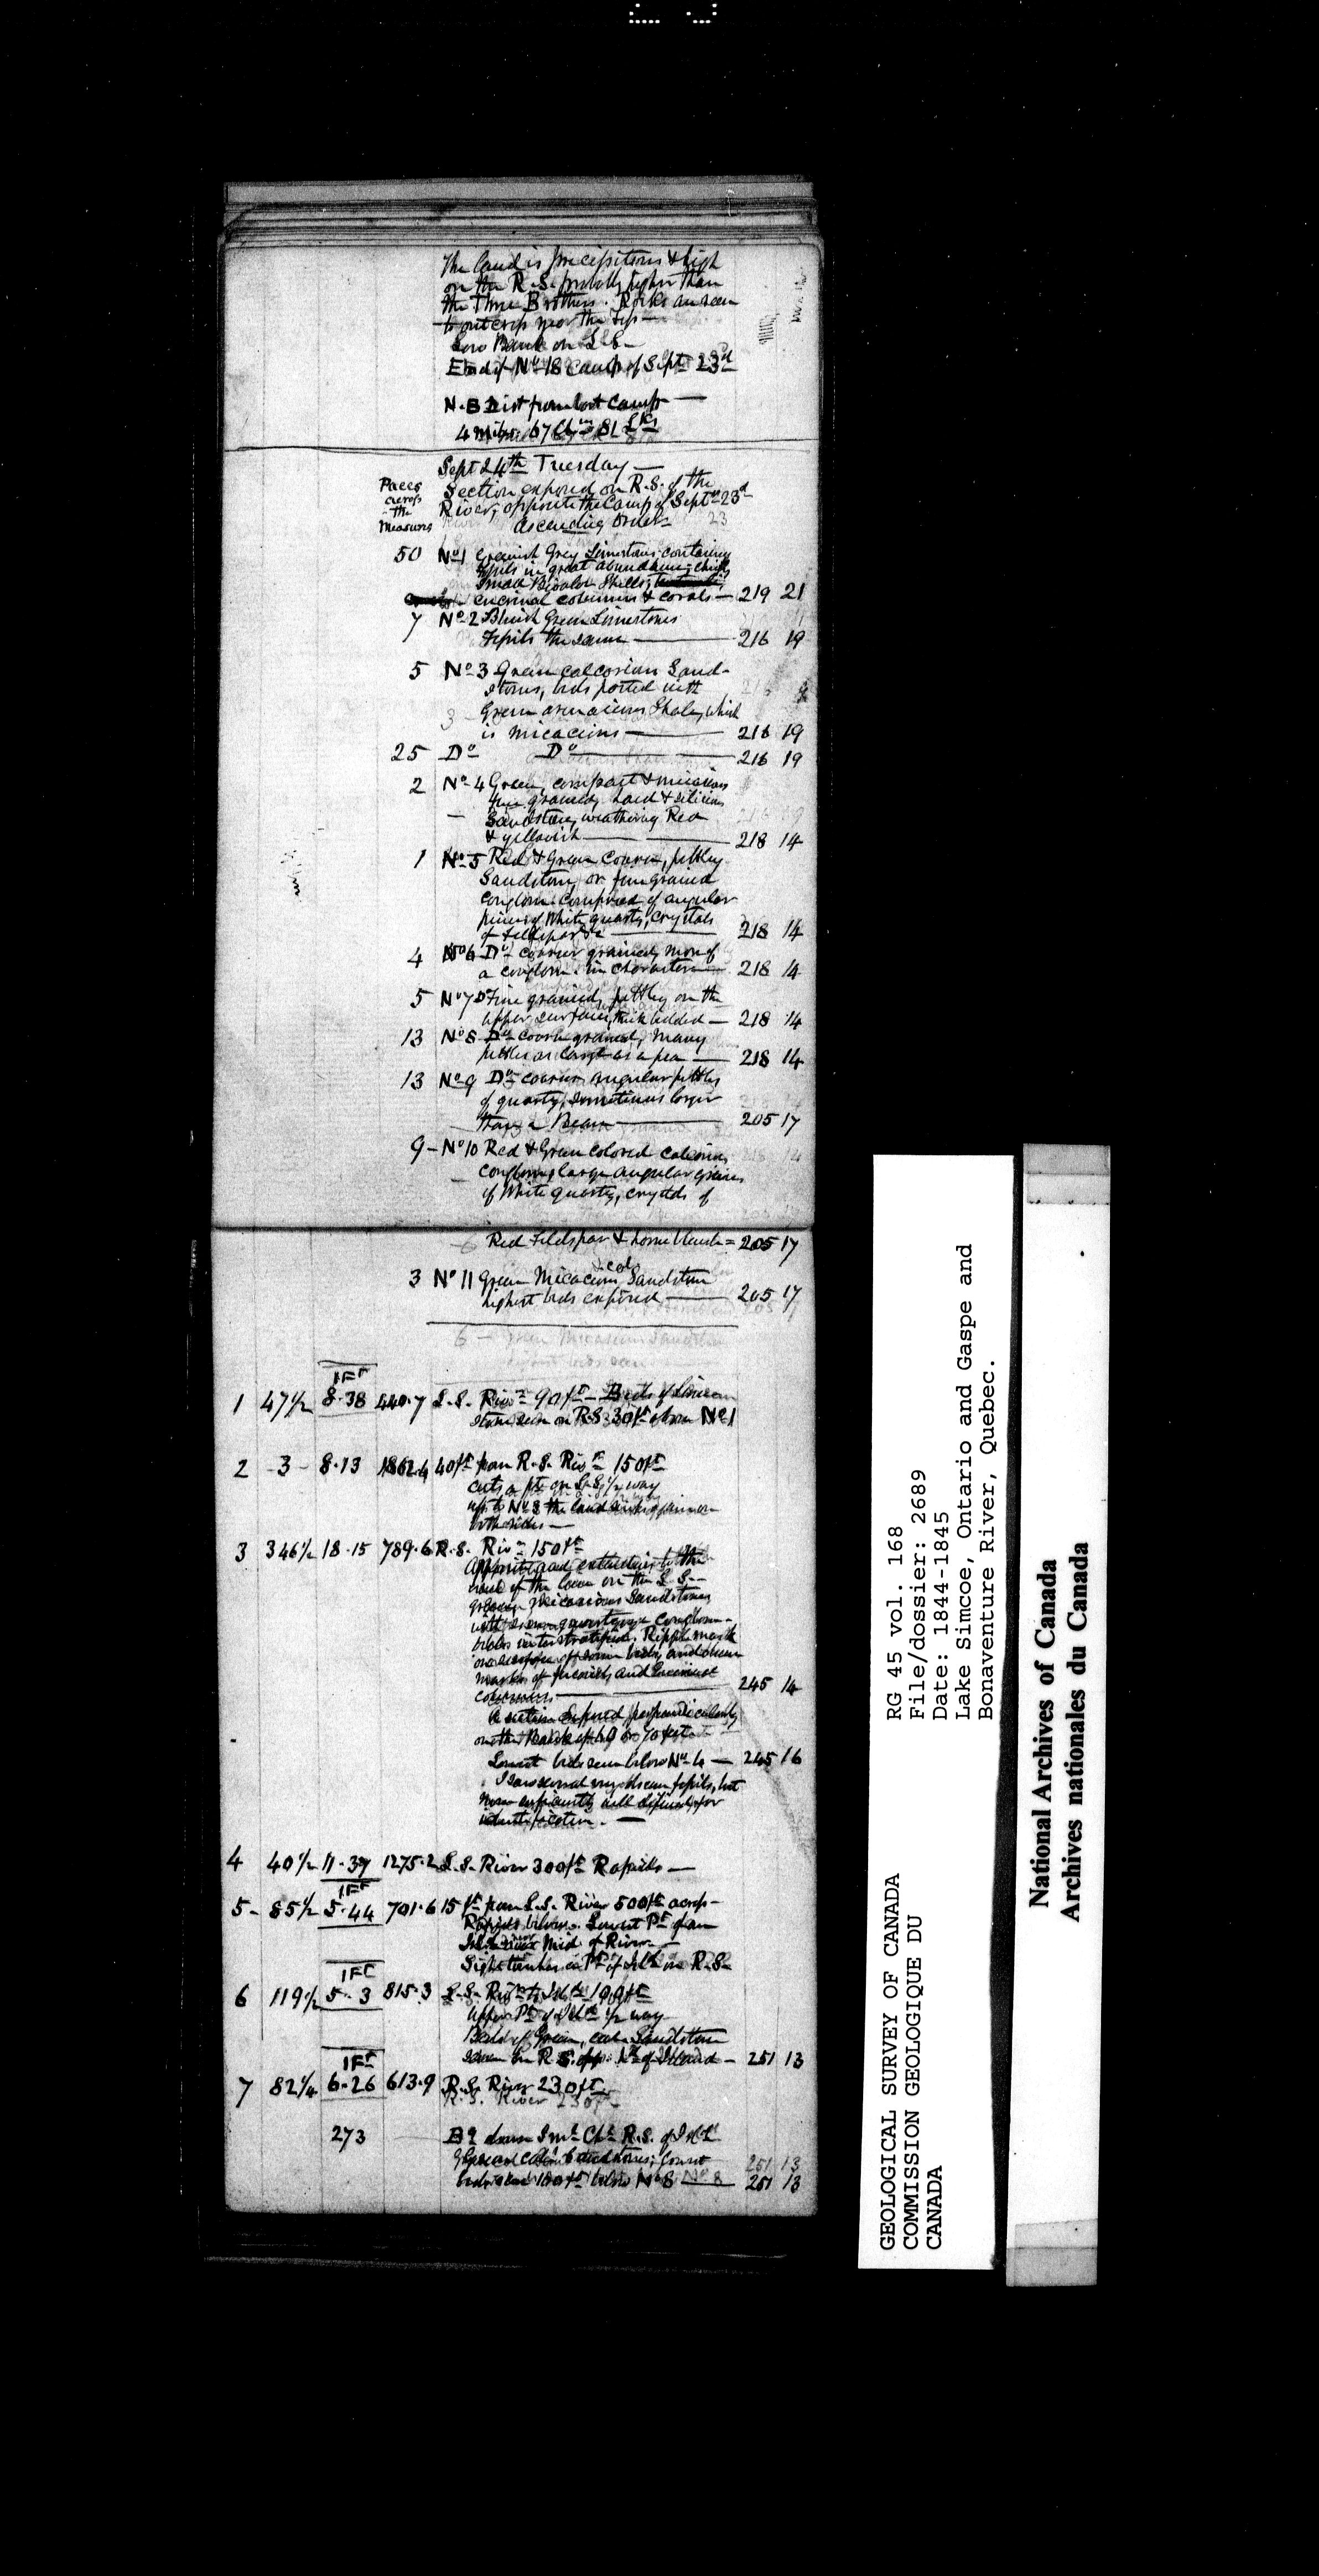 The land is precipitous & high
on the R.S. probably higher than
the Three Brothers. Rocks are seen
to outcrop near the top —
Low Bank on L.S —
End of No 18 Camp of Sept 23d
N.B Dist from last Camp —
4 miles 67 Chns 81 Lks
Sept 24th Tuesday —
Paces across the Measures
Section exposed on R.S. of the
River, opposite the Camp of Septr 23d
ascending order
50 No 1 Greenish Grey Limestone containing
fossils in great abundance, chiefly
small Bivalve Shells,
encrinal columns & corals — 219 21
7 No 2 Bluish Green Limestones
fossils the same — 216 19
5 No 3 Green calcarious Sand-
stones, beds parted with
Green arenacious Shale, which
is micacious — 216 19
25 Do Do — 216 19
2 No 4 Green, compact & micacious
fine grained, hard & silicious
Sandstone, weathering Red
& yellowish — 218 14
1 No 5 Red & Green coarse, pebbley
Sandstone, or fine grained
conglom. composed of angular
pieces of White quartz, crystals
of feldspar &c — 218 14
4 No 6 Do coarser grained, more of
a conglom. in character — 218 14
5 No 7 Do Fine grained, pebbley on the
upper surface, thick bedded — 218 14
13 No 8 Do coarse grained, many
pebbles as large as a pea — 218 14
13 No 9 Do coarser angular pebbles
of quartz, sometimes larger
than a Bean — 205 17
9 – No 10 Red & Green colored calcarious
conglom, large angular grains
of White quartz, crystals of
Red Feldspar & hornblende = 205 17
& cal
3 No 11 Green Micacious Sandstone
highest beds exposed — 205 17
1 47½ 8·38 440·7 L.S. Rivr 90 ft — Beds of Limestone
seen on R.S 30 ft above No 1
2 -3- 8·13 1862·4 40 ft from R.S. Rivr 150 ft
cuts a pt on L.S. ½ way
up to No 3 the land sinks again on
both sides —
3 346½ 18·15 789·6 R.S. Rivr 150 ft
Opposite and extending to the
of the on the L.S. —
green micacious Sandstones
with some quartzose conglom.
beds interstratified. Ripple mark
on surface of some beds, and obscure
marks of fucoids and Encrinal
columns — 245 14
A section exposed perpendicularly
on the Bank of 60 or 70 feet
Lowest beds seen below No 4 — 245 16
I saw several very obscure fossils, but
none sufficiently well defined for
identification. —
4 40½ 11·37 1275·2 L.S. River 300 ft Rapids —
5 – 85½ 5·44 701·6 15 ft from L.S. River 500 ft across —
Rapids below. Lowest Pt of an
Island near Mid. of River —
Sight taken on Pt of Isld on R.S —
6 119½ 5·3 815·3 L.S. Rivr to Isld 100 ft
Upper Pt of Isld ½ way
Beds of Green, calc Sandstone
seen on R.S. opp. Pt of Island — 251 13
7 82¼ 6·26 613·9 R.S. River 230 ft
273 Bg down Sml Chl R.S. of Isld
Green calc Sandstones; lowest
beds seen 100 ft below No 8 — 251 13
RG 45 vol. 168
File/dossier: 2689
Date: 1844-1845
Lake Simcoe, Ontario and Gaspe and
Bonaventure River, Quebec.
GEOLOGICAL SURVEY OF CANADA
COMMISSION GEOLOGIQUE DU
CANADA
National Archives of Canada
Archives nationales du Canada